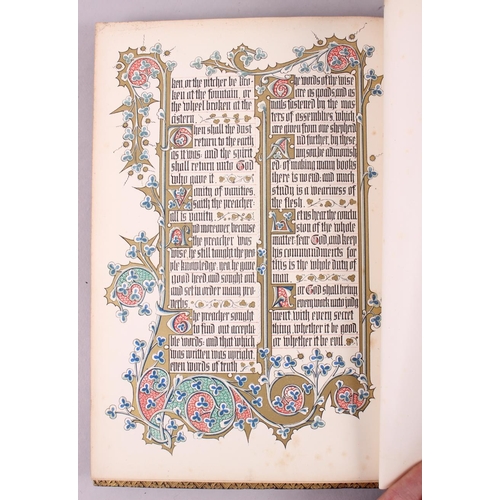 ken or the pitcher be bro-
ken at the fountain, or
the wheel broken at the
cistern.
Then shall the dust
return to the earth
as it was: and the spirit
shall return unto God
who gave it.
Vanity of vanities,
saith the preacher:
all is vanity.
And moreover because
the preacher was
wise he still taught the peo
ple knowledge, yea, he gave
good heed and sought out,
and set in order many pro
verbs
The preacher sought
to find out accepta
ble words: and that which
was written was upright,
even words of truth
The words of the wise
are as goads and as
nails fastened by the mas
ters of assemblies, which
are given from one shepherd
And further, by these
my son, be admonish
ed, of making many books
there is no end: and much
study is a weariness of
the flesh.
Let us hear the conclu
sion of the whole
matter: fear God, and keep
his commandments: for
this is the whole duty of
man.
For God shall bring
every work into judg
ment with every secret
thing, whether it be good,
or whether it be evil.